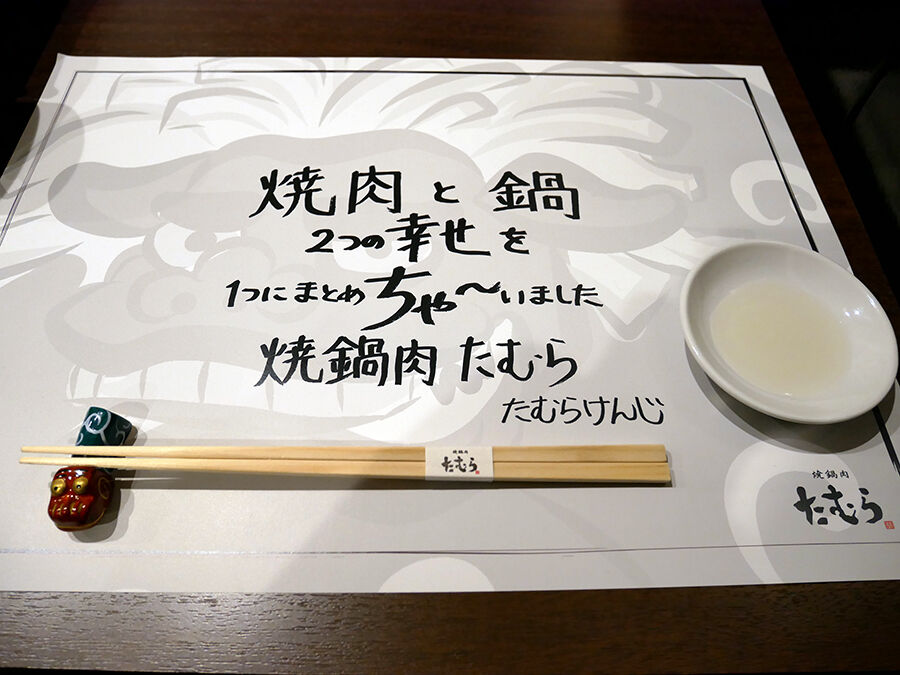 焼肉と鍋
2つの幸せを
1つにまとめちゃ〜いました
焼鍋肉 たむら
たむらけんじ
焼鍋肉
たむら
焼鍋肉
たむら